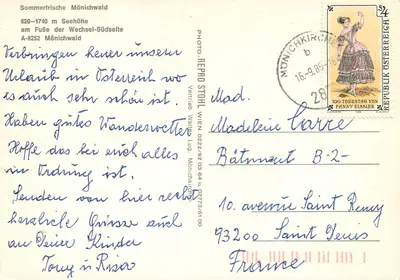 Sommerfrische Mönichwald
620–1740 m Seehöhe
am Fuße der Wechsel-Südseite
A-8252 Mönichwald
Verbringen heuer unsern
Urlaub in Österreich wo
es auch sehr schön ist.
Haben gutes Wanderwetter
Hoffe das bei euch alles
in Ordnung ist.
Senden von hier recht
herzliche Grüsse auch
an Deine Kinder
Tony u Risa
PHOTO: REPRO STOHL WIEN
MÖNICHKIRCHEN
b
S 4
REPUBLIK ÖSTERREICH
100. TODESTAG VON
FANNY ELSSLER
Mad.
Madeleine Carre
Bâtiment B-2-
10. avenue Saint Remy
93200 Saint Denis
France